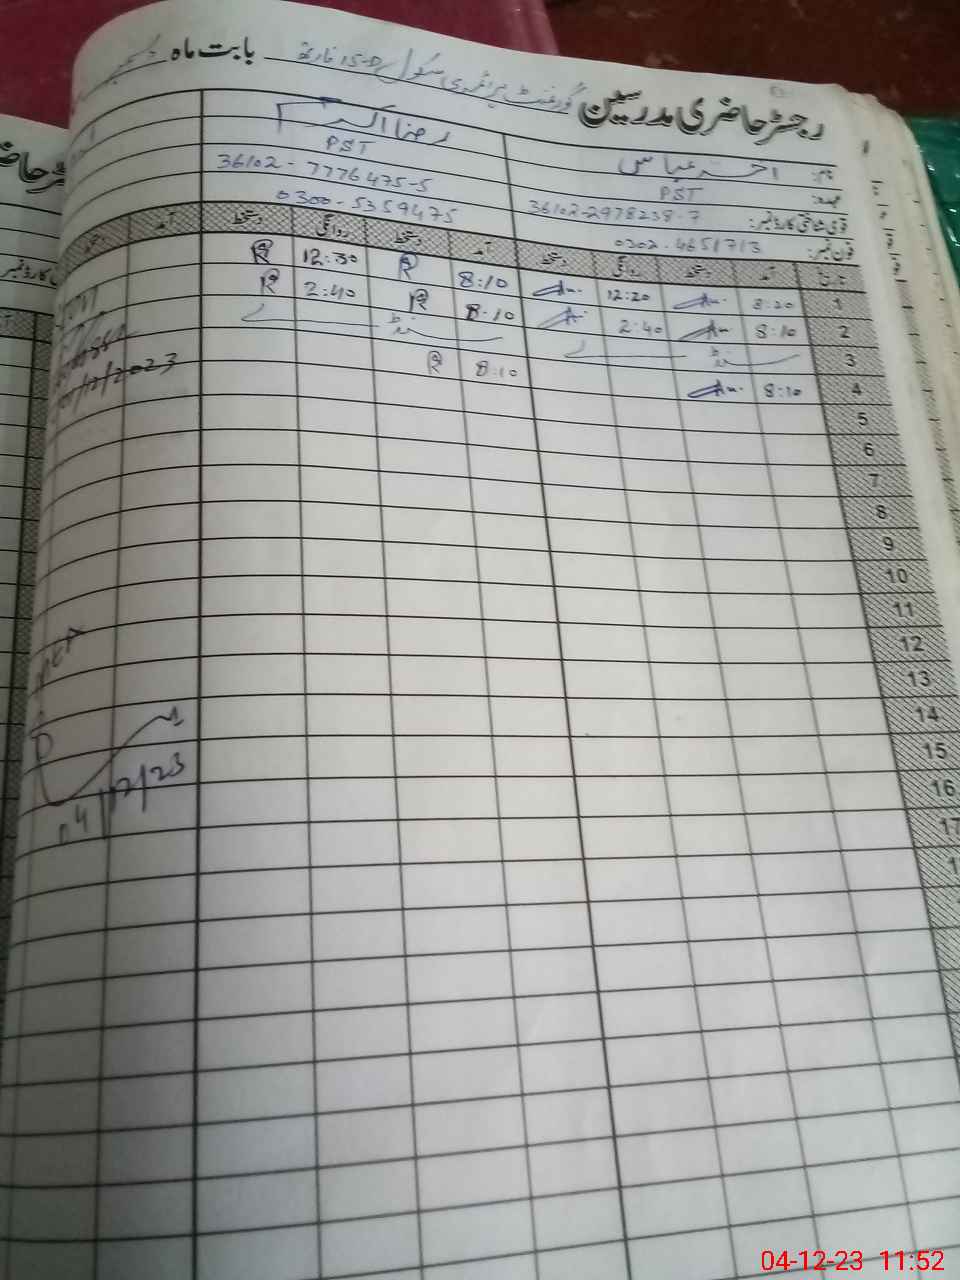 رجسٹر حاضری مدرسین گورنمنٹ پرائمری سکول 15-D بابت ماہ دسمبر
نام: اختر عباس رضا اکبر
عہدہ: PST PST
قومی شناختی کارڈ نمبر: 36102-2978238-7 36102-7776475-5
فون نمبر: 0302-4651713 0300-5359475
تاریخ آمد دستخط روانگی دستخط آمد دستخط روانگی دستخط آمد
1 8:20 12:20 8:10 R 12:30 R
2 8:10 2:40 8:10 R 2:40 R
3 سنڈے سنڈے
4 8:10 8:10 R
5
6
7
8
9
10
11
12
13
14
15
16
17
/12/2023
04/12/23
04-12-23 11:52